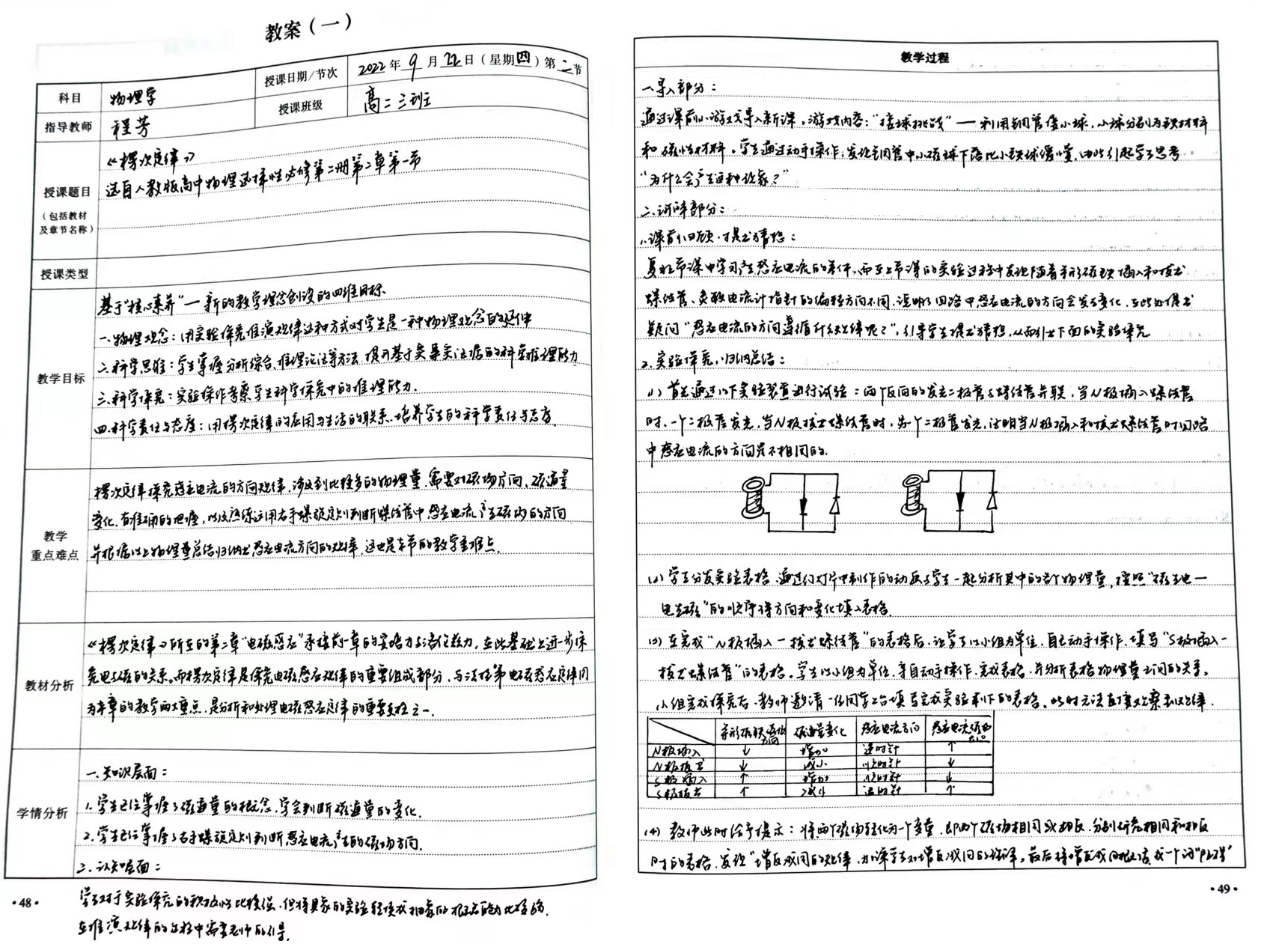 教案（一）
科目
物理学
授课日期/节次
2022年9月22日（星期四）第二节
授课班级
高二三班
指导教师
程芳
授课题目
（包括教材
及章节名称）
《楞次定律》
选自人教版高中物理选择性必修第二册第二章第一节
授课类型
教学目标
基于"核心素养"一新的教学理念创设的四维目标
一.物理观念：用实验探究推演规律这种方式对学生是一种物理观念的延伸
二.科学思维：学生掌握分析综合、推理论证等方法，提升基于实事实证据的科学推理能力
三.科学探究：实验操作考察学生科学探究中的推理能力.
四.科学责任与态度：用楞次定律的应用与生活的联系，培养学生的科学责任与态度
教学
重点难点
楞次定律探究感应电流的方向规律，涉及到比较多的物理量，需要对磁场方向、磁通量
变化有准确的把握，以及熟练运用右手螺旋定则判断螺线管中感应电流产生磁场的方向
并根据以上物理量总结归纳出感应电流方向的规律，这也是本节的教学重难点.
教材分析
《楞次定律》所在的第二章"电磁感应"承接前一章的安培力与洛伦兹力，在此基础上进一步探
究电与磁的关系.而楞次定律是探究电磁感应规律的重要组成部分，与法拉第电磁感应定律同
为本章的教学两大重点，是分析和处理电磁感应定律的重要支柱之一.
学情分析
一.知识层面：
1.学生已经掌握了磁通量的概念，学会判断磁通量的变化.
2.学生已经掌握了右手螺旋定则判断感应电流产生的磁场方向.
二.认知层面：
学生对于实验探究的积极性比较强，但将具象的实验转换成抽象的概念能力比较弱，
在推演规律的过程中需要老师的引导.
·48·
教学过程
一.导入部分：
通过课前小游戏导入新课，游戏内容："接球挑战"一利用铜管接小球，小球分别为铁材料
和磁性材料。学生通过动手操作，发现铜管中小磁球下落比小铁球缓慢，由此引起学生思考
"为什么会产生这种现象？"
二.讲解部分：
1.课前回顾，提出猜想：
复习上节课中学习产生感应电流的条件，而在上节课的实验过程中发现随着条形磁铁插入和拔出
螺线管、灵敏电流计指针的偏转方向不同，说明了回路中感应电流的方向会发生变化，在此处提出
疑问"感应电流的方向遵循什么规律呢？"，引导学生提出猜想，从而引出下面的实验探究
2.实验探究，归纳总结：
(1) 首先通过以下实验装置进行试验：两个反向的发光二极管与螺线管并联，当N极插入螺线管
时，一个二极管发光，当N极拔出螺线管时，另一个二极管发光，证明当N极插入和拔出螺线管时回路
中感应电流的方向是不相同的.
(2) 学生分发实验表格，通过幻灯片中制作的动画与学生一起分析其中的各个物理量，按照"磁生电一
电生磁"的顺序将方向和变化填入表格
(3) 在完成"N极插入一拔出螺线管"的表格后，让学生以小组为单位，自己动手操作，填写"S极插入一
拔出螺线管"的表格，学生以小组为单位，亲自动手操作，完成表格，并分析表格物理量之间的关系，
小组完成探究后，教师邀请一位同学上台填写完成实验剩下的表格，此时无法直接观察到规律.
条形磁铁磁场方向 磁通量变化 感应电流方向 感应电流磁场方向
N极插入 ↓ 增加 逆时针 ↑
N极拔出 ↓ 减小 顺时针 ↓
S极插入 ↑ 增加 顺时针 ↓
S极拔出 ↑ 减小 逆时针 ↑
(4) 教师此时给予提示：将两个磁场转化为一个变量，即两个磁场相同或相反，分别研究相同和相反
时的表格，发现"增反减同"的规律，并让学生对增反减同的诠释，最后将增反减同概括成一个词"阻碍"
·49·